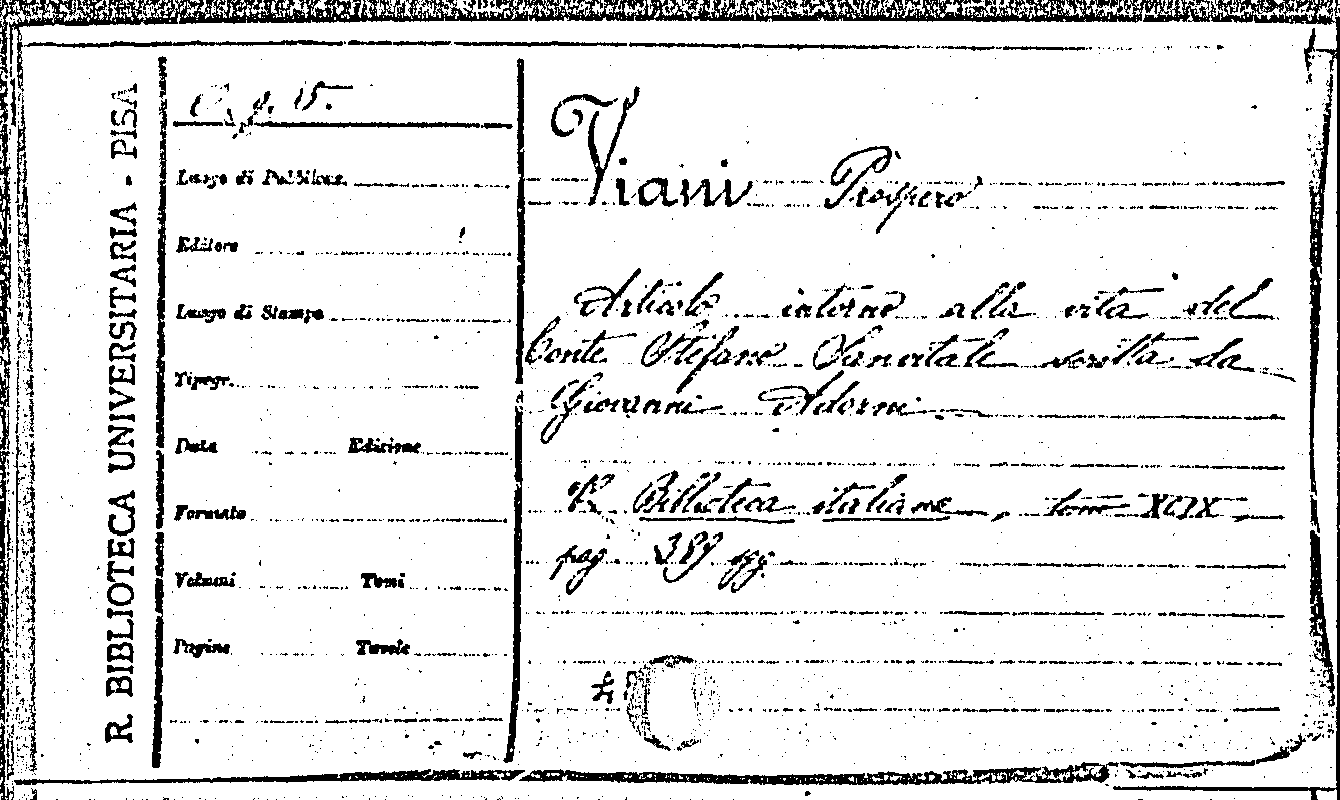 R. BIBLIOTECA UNIVERSITARIA - PISA
C. g. 15.
Luogo di Pubblicaz.
Editore
Luogo di Stampa
Tipogr.
Data Edizione
Formato
Volumi Tomi
Pagine Tavole
Viani Prospero
Articolo intorno alla vita del
Conte Stefano Sanvitale scritta da
Giovanni Adorni.
Biblioteca italiana, tom XCIX,
pag. 389 sgg.